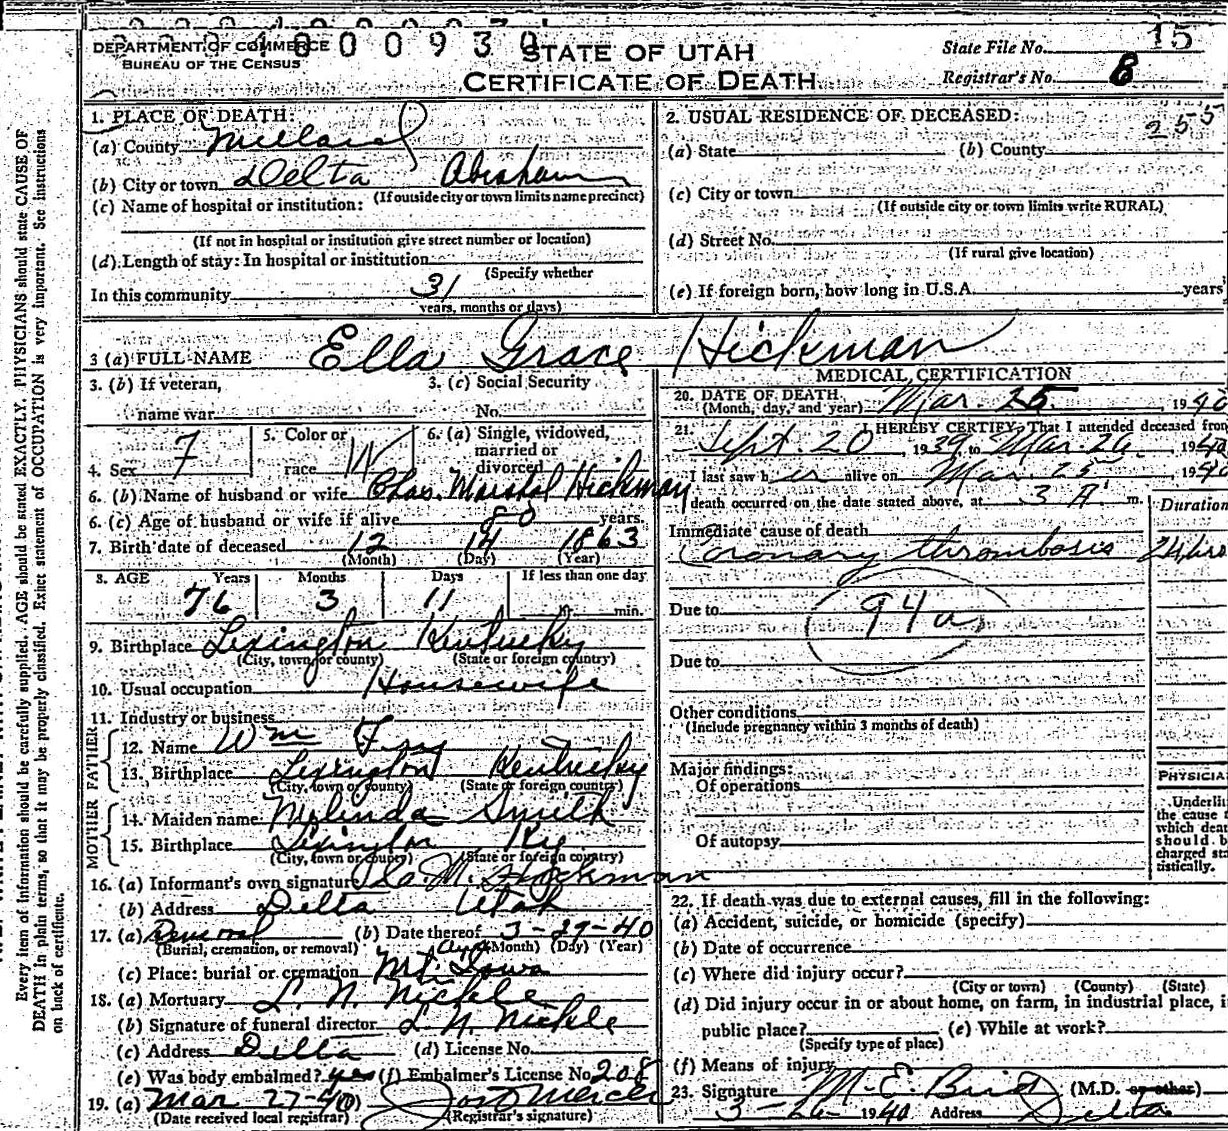 DEPARTMENT OF COMMERCE
BUREAU OF THE CENSUS
STATE OF UTAH
CERTIFICATE OF DEATH
State File No. 15
Registrar's No. 8
Every item of information should be carefully supplied. AGE should be stated EXACTLY. PHYSICIANS should state CAUSE OF
DEATH in plain terms, so that it may be properly classified. Exact statement of OCCUPATION is very important. See instructions
on back of certificate.
1. PLACE OF DEATH:
(a) County Millard
(b) City or town Delta Abraham
(If outside city or town limits name precinct)
(c) Name of hospital or institution:
(If not in hospital or institution give street number or location)
(d) Length of stay: In hospital or institution
(Specify whether
In this community 31
years, months or days)
2. USUAL RESIDENCE OF DECEASED:
255
(a) State (b) County
(c) City or town
(If outside city or town limits write RURAL)
(d) Street No.
(If rural give location)
(e) If foreign born, how long in U.S.A. years
3 (a) FULL NAME Ella Grace Hickman
3. (b) If veteran,
name war
3. (c) Social Security
No.
4. Sex F
5. Color or
race W
6. (a) Single, widowed,
married or
divorced
6. (b) Name of husband or wife Chas. Marshal Hickman
6. (c) Age of husband or wife if alive 80 years.
7. Birth date of deceased 12 14 1863
(Month) (Day) (Year)
8. AGE Years Months Days If less than one day
76 3 11 hr. min.
9. Birthplace Lexington Kentucky
(City, town, or county) (State or foreign country)
10. Usual occupation Housewife
11. Industry or business
FATHER
12. Name Wm
13. Birthplace Lexington Kentucky
(City, town or county) (State or foreign country)
MOTHER
14. Maiden name Melinda Smith
15. Birthplace Lexington Ky.
(City, town or county) (State or foreign country)
16. (a) Informant's own signature M. Hickman
(b) Address Delta Utah
17. (a) Removal (b) Date thereof 3-29-40
(Burial, cremation, or removal) (Month) (Day) (Year)
(c) Place: burial or cremation Mt. Ayr Iowa
18. (a) Mortuary L. N. Nickle
(b) Signature of funeral director L. N. Nickle
(c) Address Delta (d) License No.
(e) Was body embalmed? yes (f) Embalmer's License No. 208
19. (a) Mar 27-40
(Date received local registrar) (Registrar's signature)
MEDICAL CERTIFICATION
20. DATE OF DEATH
(Month, day, and year) Mar. 25, 1940
21. I HEREBY CERTIFY, That I attended deceased from
Sept. 20, 1939, to Mar. 26, 1940
I last saw her alive on Mar. 25 1940
death occurred on the date stated above, at 3 A m.
Duration
Immediate cause of death
Coronary thrombosis 24 hrs
94a
Due to
Due to
Other conditions
(Include pregnancy within 3 months of death)
Major findings:
Of operations
Of autopsy
PHYSICIA
Underli
the cause t
which deat
should b
charged sta
tistically.
22. If death was due to external causes, fill in the following:
(a) Accident, suicide, or homicide (specify)
(b) Date of occurrence
(c) Where did injury occur?
(City or town) (County) (State)
(d) Did injury occur in or about home, on farm, in industrial place, i
public place? (e) While at work?
(Specify type of place)
(f) Means of injury
23. Signature M. E. Bird (M.D. or other)
3-26-1940 Address Delta